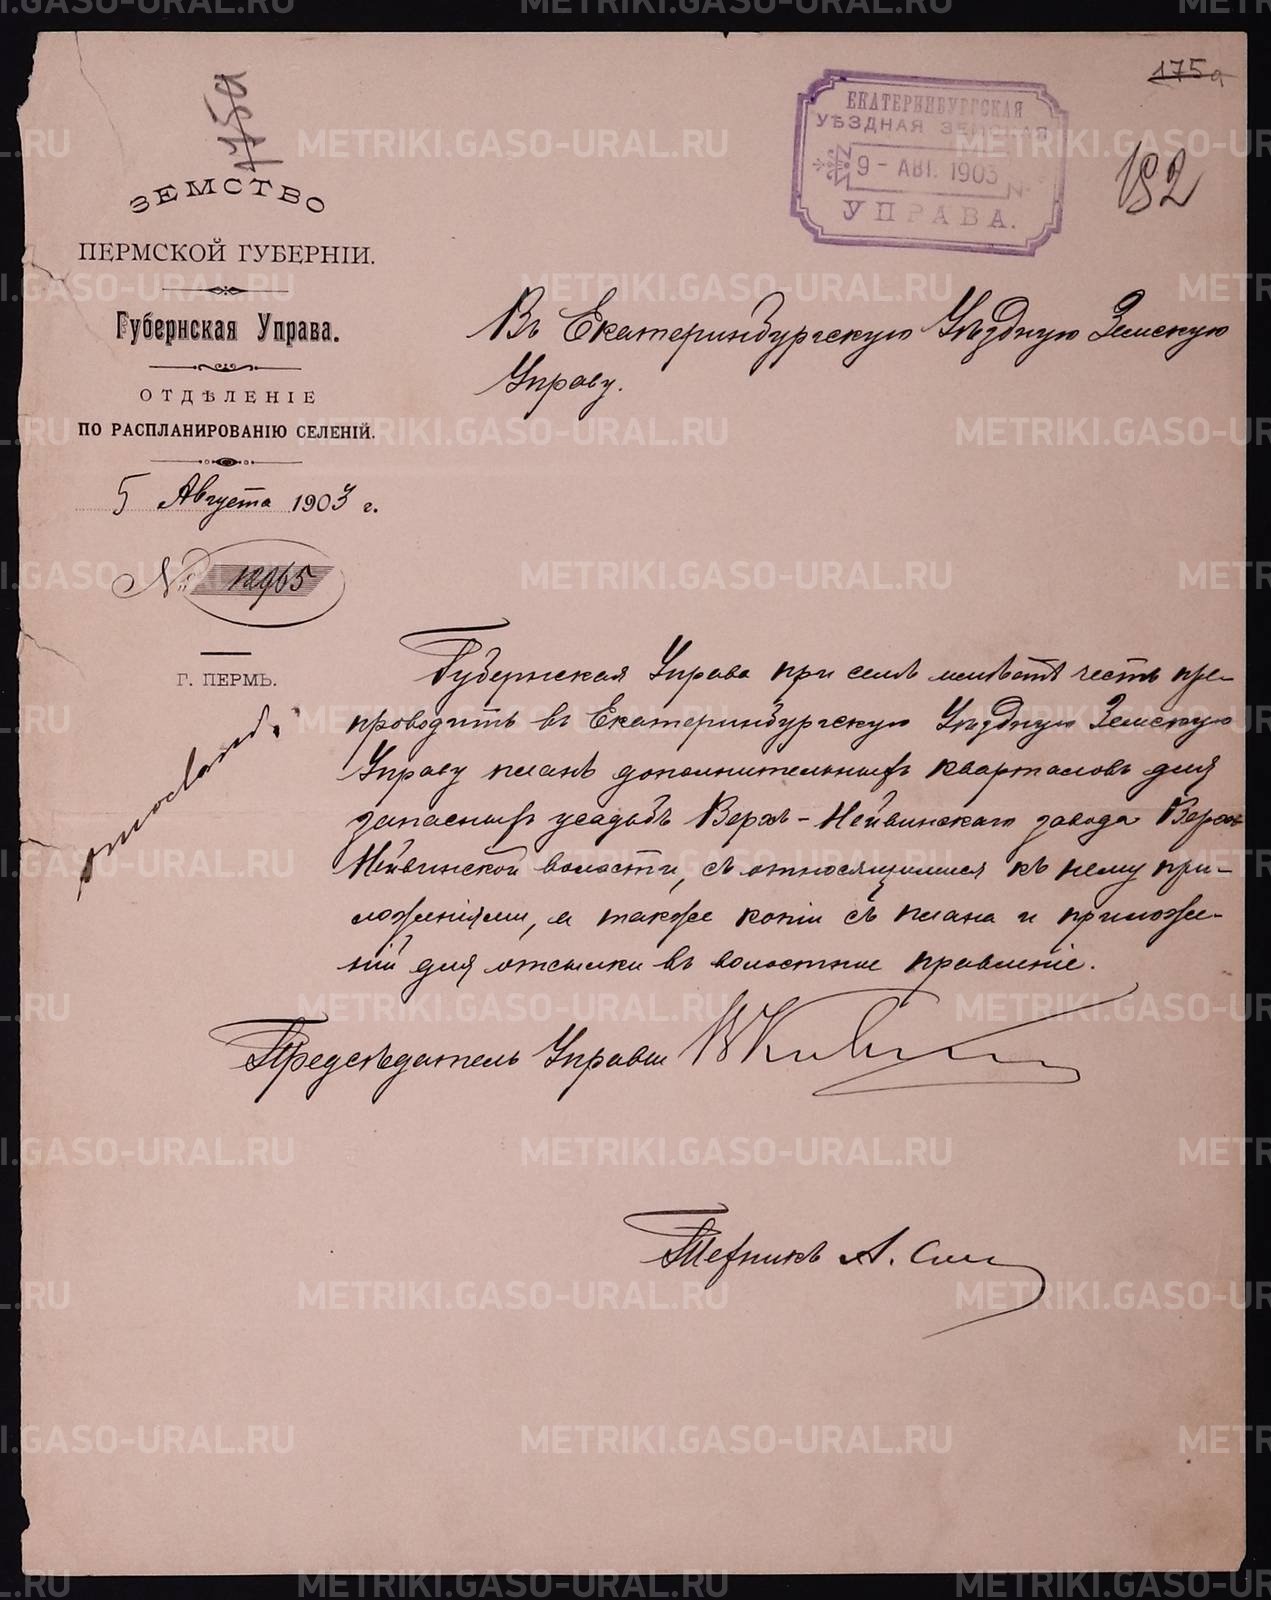 175а
175а
ЕКАТЕРИНБУРГСКАЯ
УѢЗДНАЯ ЗЕМСКАЯ
9 - АВГ. 1903
УПРАВА.
182
ЗЕМСТВО
ПЕРМСКОЙ ГУБЕРНІИ.
Губернская Управа.
ОТДѢЛЕНІЕ
ПО РАСПЛАНИРОВАНІЮ СЕЛЕНІЙ.
5 Августа 1903 г.
№ 12965
Г. ПЕРМЬ.
Въ Екатеринбургскую Уѣздную Земскую
Управу.
Губернская Управа при семъ имѣетъ честь пре-
проводить въ Екатеринбургскую Уѣздную Земскую
Управу планъ дополнительныхъ кварталовъ для
запасныхъ усадьбъ Верхъ-Нейвинскаго завода Верхъ-
Нейвинской волости, съ относящимися къ нему при-
ложеніями, а также копіи съ плана и приложе-
ній для отсылки въ волостное правленіе.
Предсѣдатель Управы
Техникъ А.
METRIKI.GASO-URAL.RU